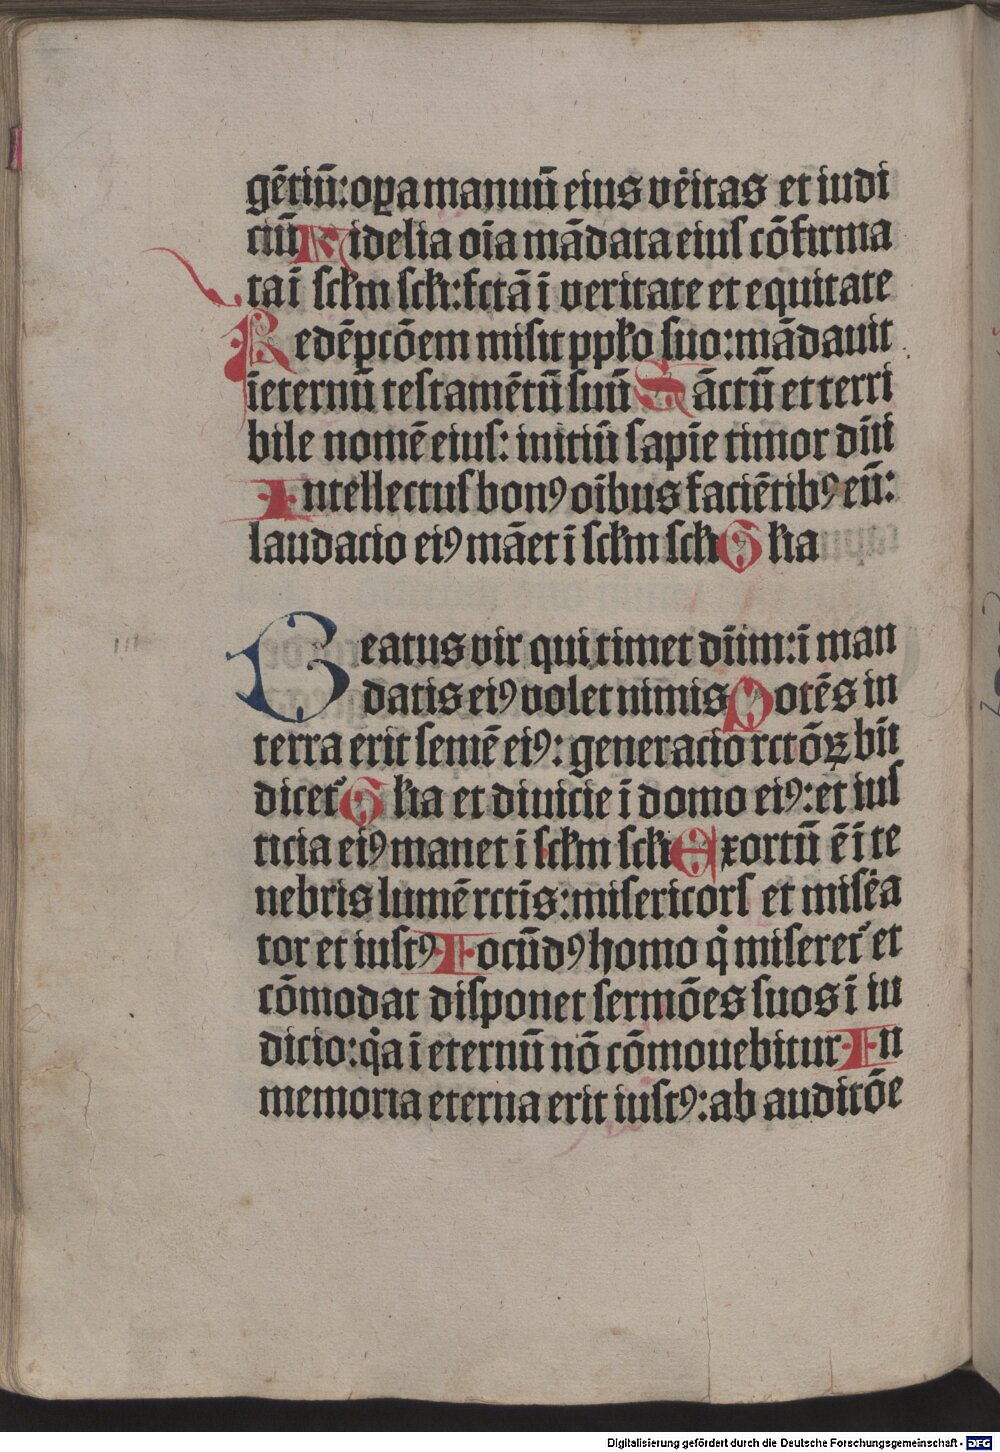 gētiū:oꝑa manuū eius v̄itas et iudi
ciū Fidelia oīa mādata eius cōfirma
ta ī sclm scli:fctā ī veritate et equitate
Redēpcōem misit pplo suo:mādauit
īeternū testamētū suū Sāctū et terri
bile nomē eius: initiū sapīe timor dn̄i
Intellectus bonꝰ oībus faciētibꝰ eū:
laudacio eiꝰ māet ī sclm scli Glia
Beatus vir qui timet dn̄m:ī man
datis eiꝰ volet nimis Potēs in
terra erit semē eiꝰ: generacio rctōꝝ bn̄
dicet᷑ Glia et diuicie ī domo eiꝰ:et ius
ticia eiꝰ manet ī sclm scli Exortū ē ī te
nebris lumē rctīs:misericors et misēa
tor et iustꝰ Iocūdꝰ homo q̇ miseret᷑ et
cōmodat disponet sermōes suos ī iu
dicio:q̇a ī eternū nō cōmouebitur In
memoria eterna erit iustꝰ:ab auditōe
Digitalisierung gefördert durch die Deutsche Forschungsgemeinschaft - DFG